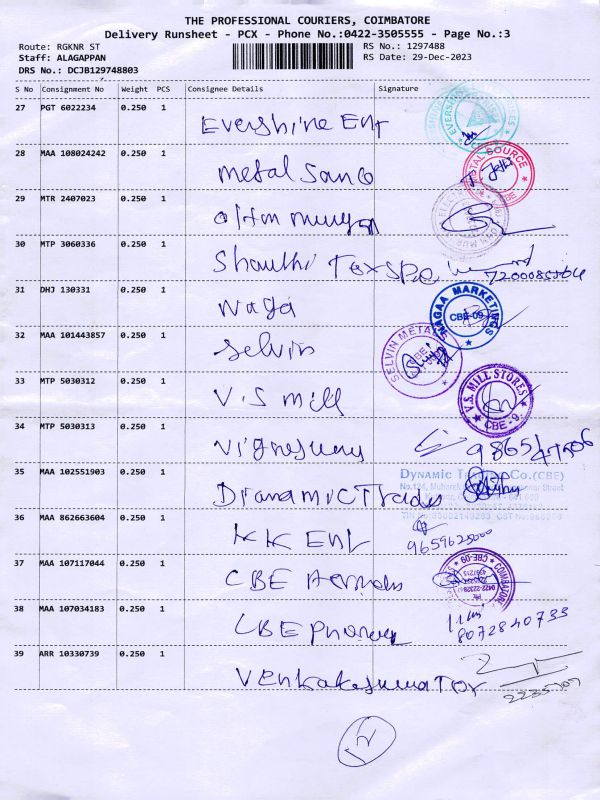 THE PROFESSIONAL COURIERS, COIMBATORE
Delivery Runsheet - PCX - Phone No.:0422-3505555 - Page No.:3
Route: RGKNR ST
RS No.: 1297488
Staff: ALAGAPPAN
RS Date: 29-Dec-2023
DRS No.: DCJB129748803
S No Consignment No Weight PCS Consignee Details Signature
27 PGT 6022234 0.250 1 Evershine Ent
28 MAA 108024242 0.250 1 metal
METAL SOURCE
29 MTR 2407023 0.250 1
30 MTP 3060336 0.250 1 Shanthi
31 DHJ 130331 0.250 1 Naga
NAGAA MARKETINGS
CBE-09
32 MAA 101443857 0.250 1 Selvin
SELVIN METALS
33 MTP 5030312 0.250 1 V.S mill
V.S. MILL STORES
CBE - 9.
34 MTP 5030313 0.250 1
35 MAA 102551903 0.250 1
DYNAMIC Co.(CBE)
36 MAA 862663604 0.250 1 KK Ent
37 MAA 107117044 0.250 1 CBE
CBE-09
COIMBATORE
38 MAA 107034183 0.250 1 CBE
8072840733
39 ARR 10330739 0.250 1